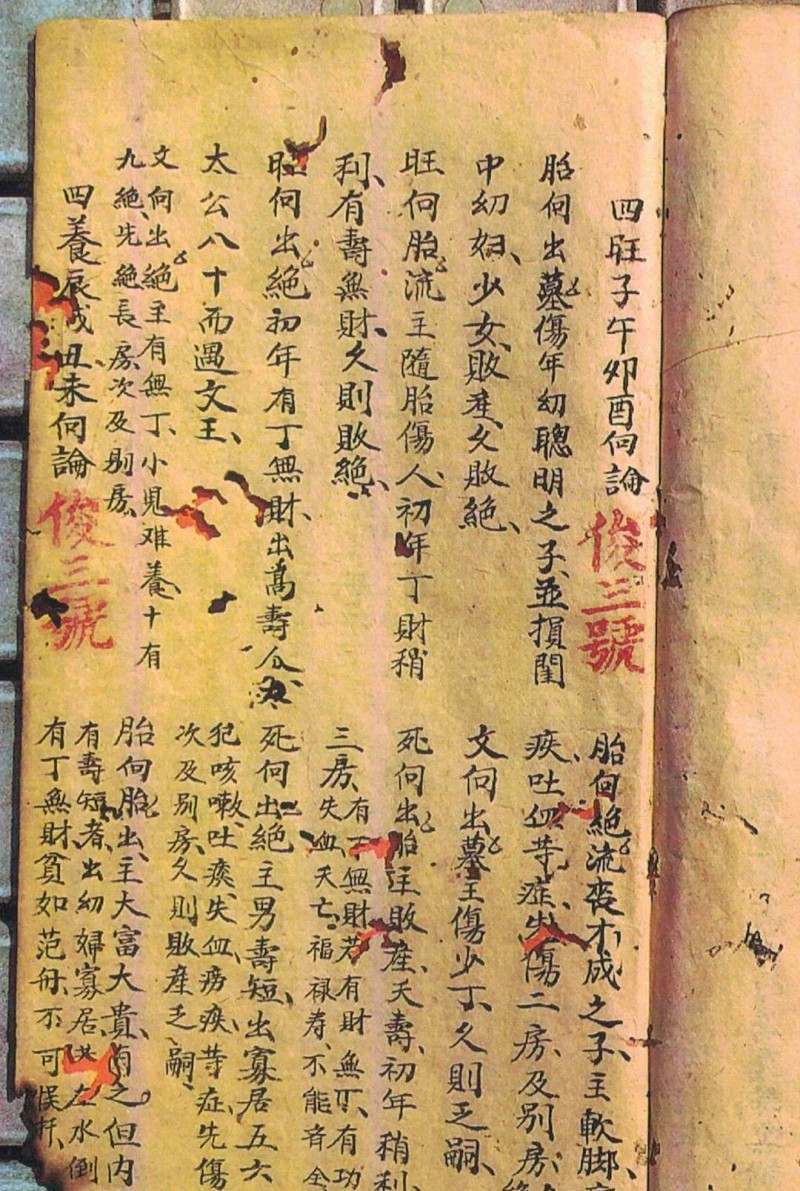 四旺子午卯酉向論
俊三號
胎向出墓傷年幼聰明之子、並損閨
中幼婦、少女、敗產、久敗絕、
旺向胎流主隨胎傷人、初年丁財稍
利、有壽無財、久則敗絕、
旺向出絕初年有丁無財、出高壽人
太公八十而遇文王、
文向出絕主有無丁、小児难養、十有
九絕、先絕長房、次及別房、
四養辰戌丑未向論
俊三號
胎向絕流丧才成之子、主軟脚、
疾、吐血等症、傷二房、及別房、
文向出墓主傷少丁、久則乏嗣、
死向出胎主敗產、夭壽、初年稍利、
三房、有丁無財、若有財無丁、有功
失血、夭亡、福禄寿、不能全
死向出絕主男壽短、出寡居五六
犯咳嗽、吐痰、失血、癆疾等症、先傷
次及別房、久則敗產乏嗣、
胎向胎出、主大富大貴、有之、但内
有壽短者、出幼婦寡居、左水倒
有丁無財、貧如范冉、不可悮扦、